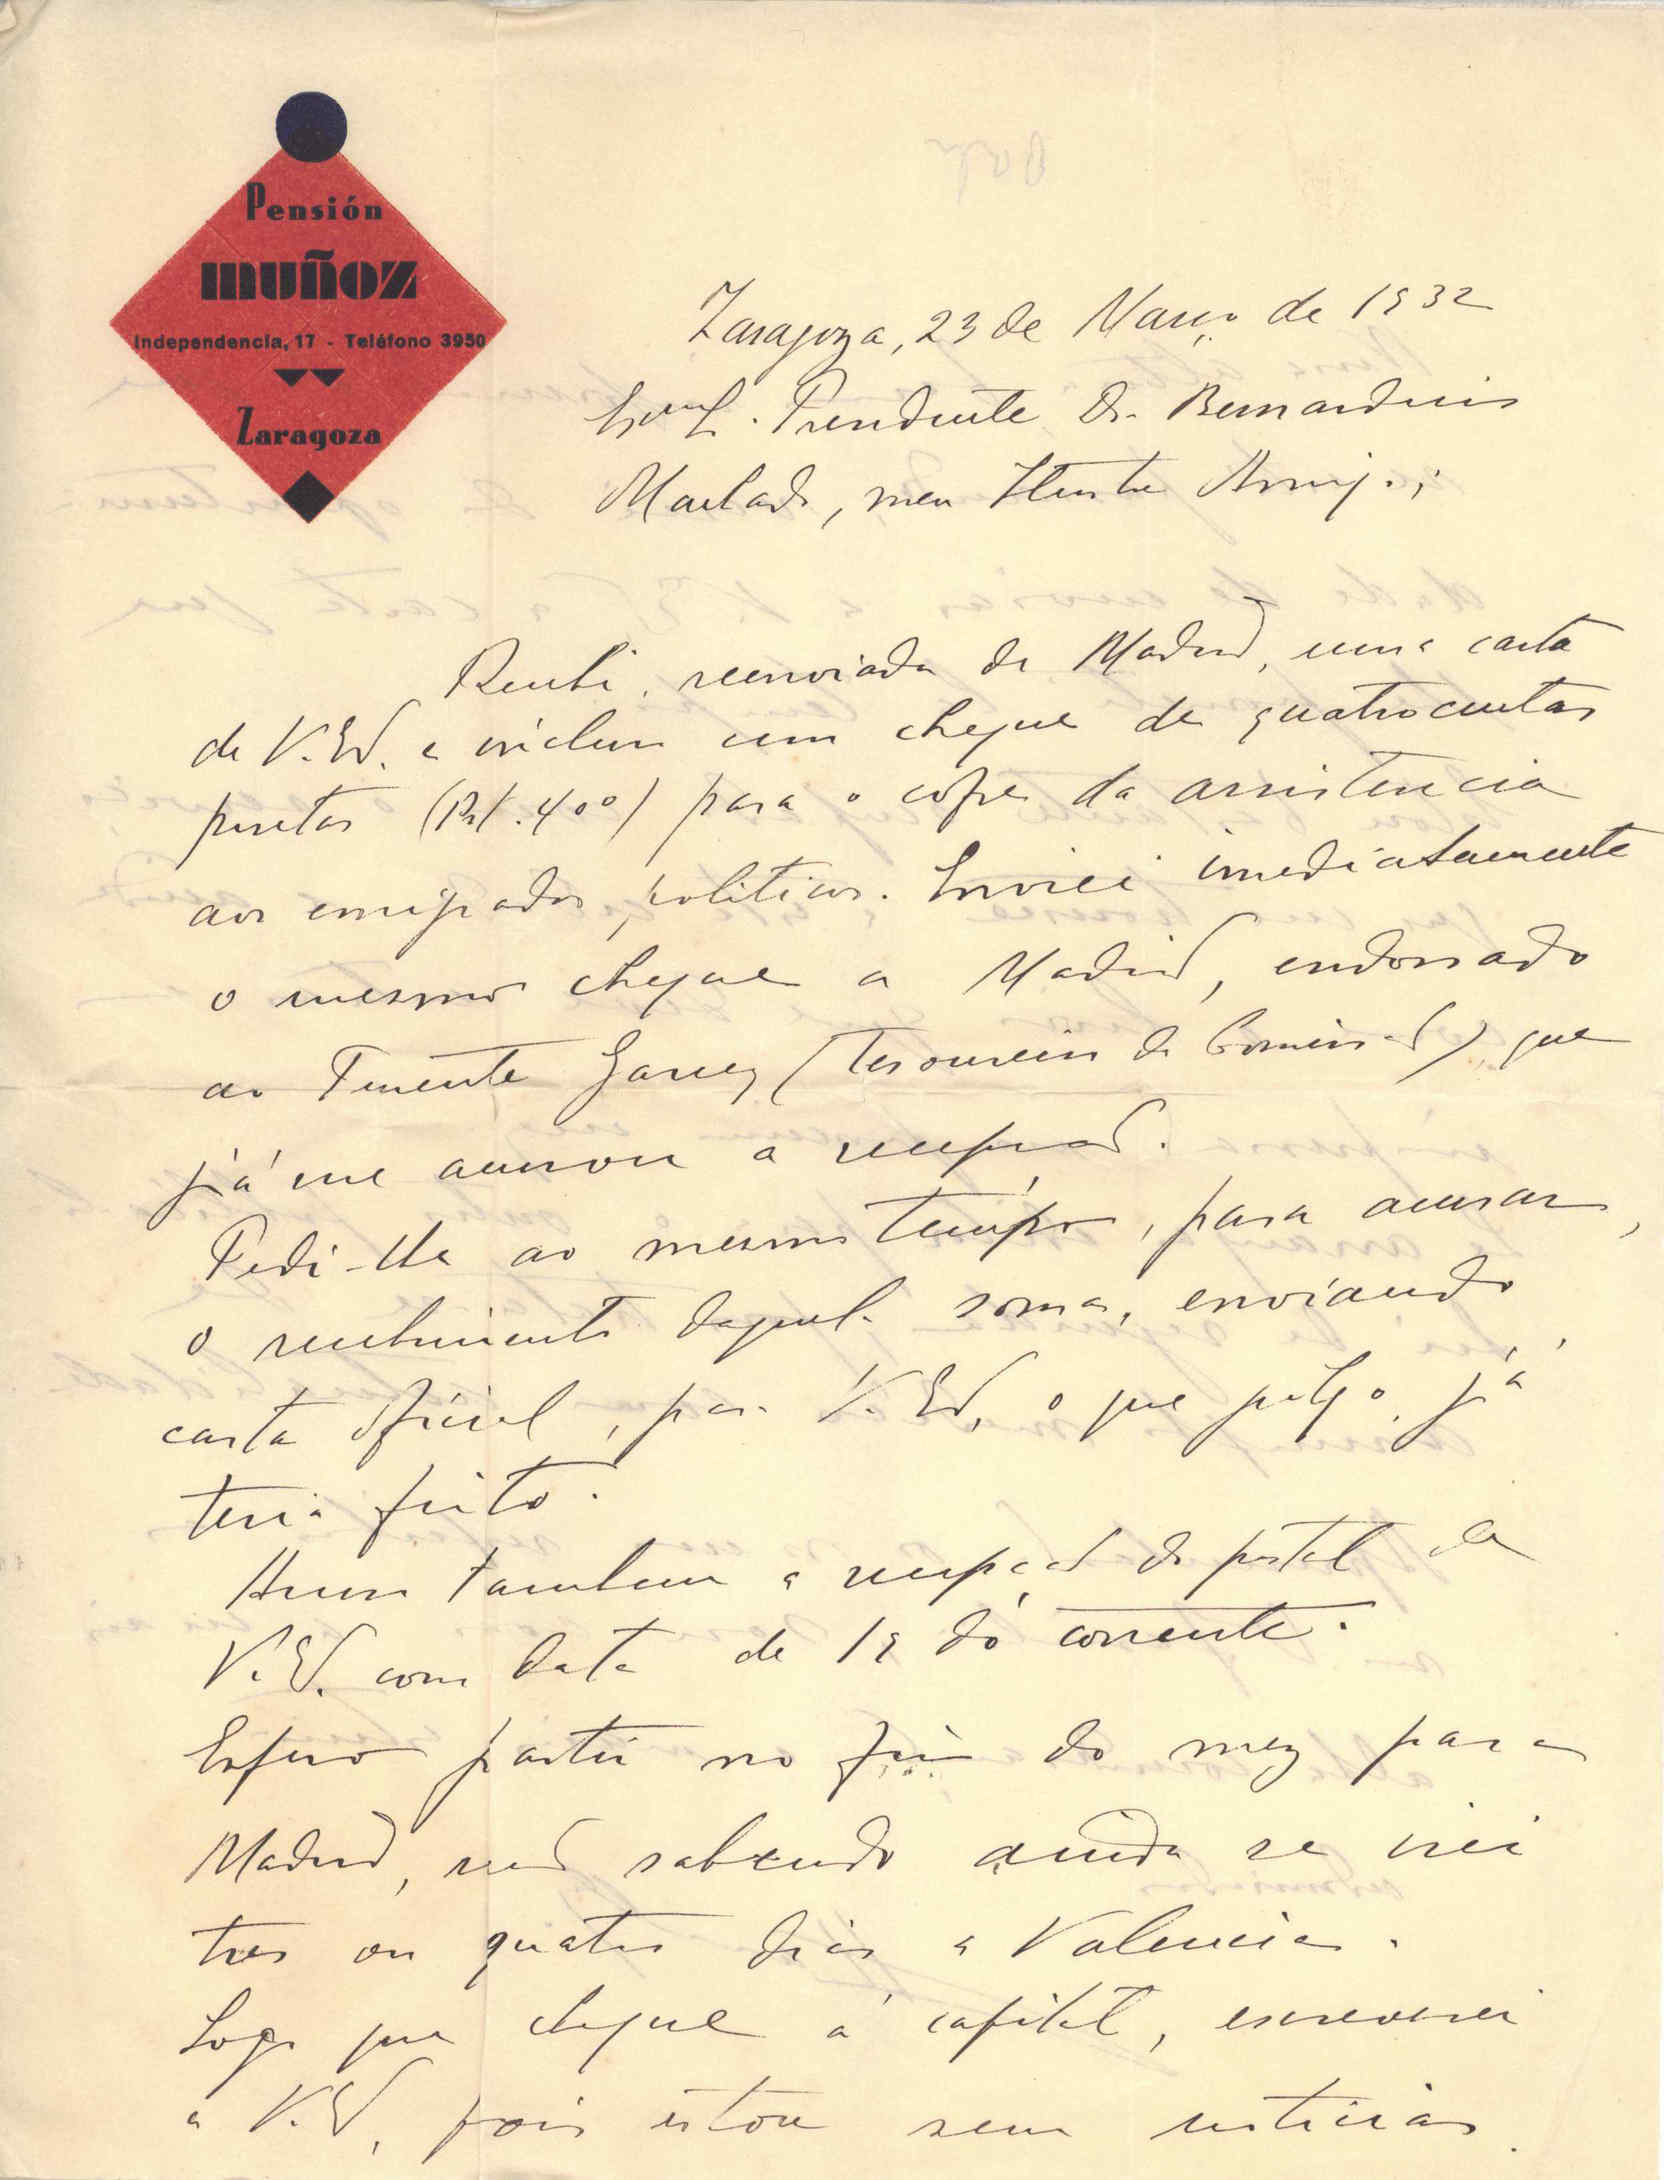 Pensión
Muñoz
Independencia, 17 - Teléfono 3950
Zaragoza
Zaragoza, 23 de Março de 1932
Presidente Dr. Bernardino
Machado, meu Ilustre Amigo;
Recebi, reenviada de Madrid, uma carta
de V. Exª. e inclusa um cheque de quatrocentas
pesetas (Pst. 400) para o cofre da assistencia
aos emigrados politicos. Enviei imediatamente
o mesmo cheque a Madrid, endossado
ao Tenente Garcez (Tesoureiro da Comissão), que
já me acusou a recepção.
Pedi-lhe ao mesmo tempo, para acusar,
o recebimento daquela soma, enviando
carta oficial, para V. Exª, o que julgo já
teria feito.
Acuso tambem a recepção do postal de
V. Exª. com data de 19 do corrente.
Espero partir no fim do mez para
Madrid, não sabendo ainda se irei
tres ou quatro dias a Valencia.
Logo que chegue á capital, escreverei
a V. Exª, pois estou sem noticias